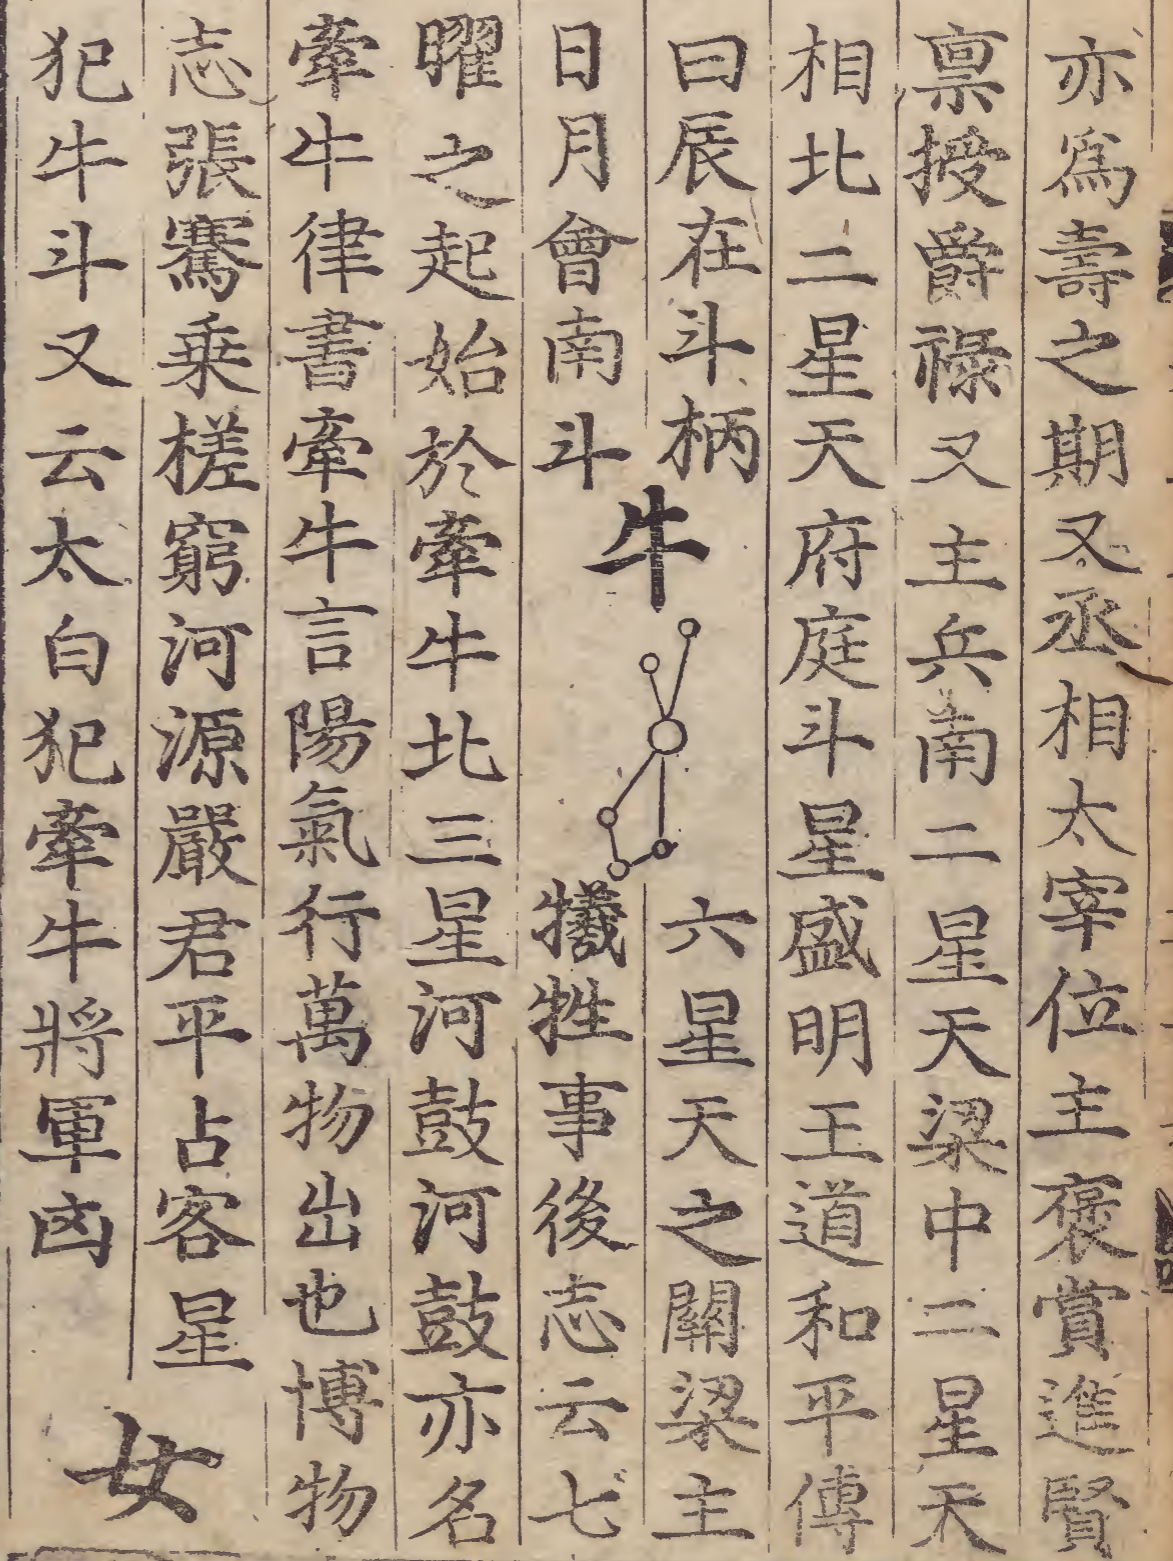 亦爲壽之期又丞相太宰位主褒賞進賢
禀授爵祿又主兵南二星天梁中二星天
相北二星天府庭斗星盛明王道和平傳
曰辰在斗柄
日月會南斗
牛
六星天之關梁主
犧牲事後志云七
曜之起始於牽牛北三星河鼓河鼓亦名
牽牛律書牽牛言陽氣行萬物出也博物
志張騫乗槎窮河源嚴君平占客星
犯牛斗又云太白犯牽牛將軍凶
女